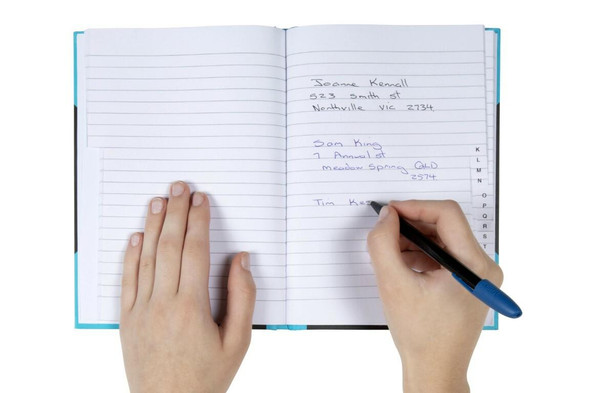 Joanne Kemall
523 Smith st
Northville Vic 2734
Sam King
7 Annual st
meadow Spring QLD
2974
Tim
K
L
M
N
O
P
Q
R
S
T